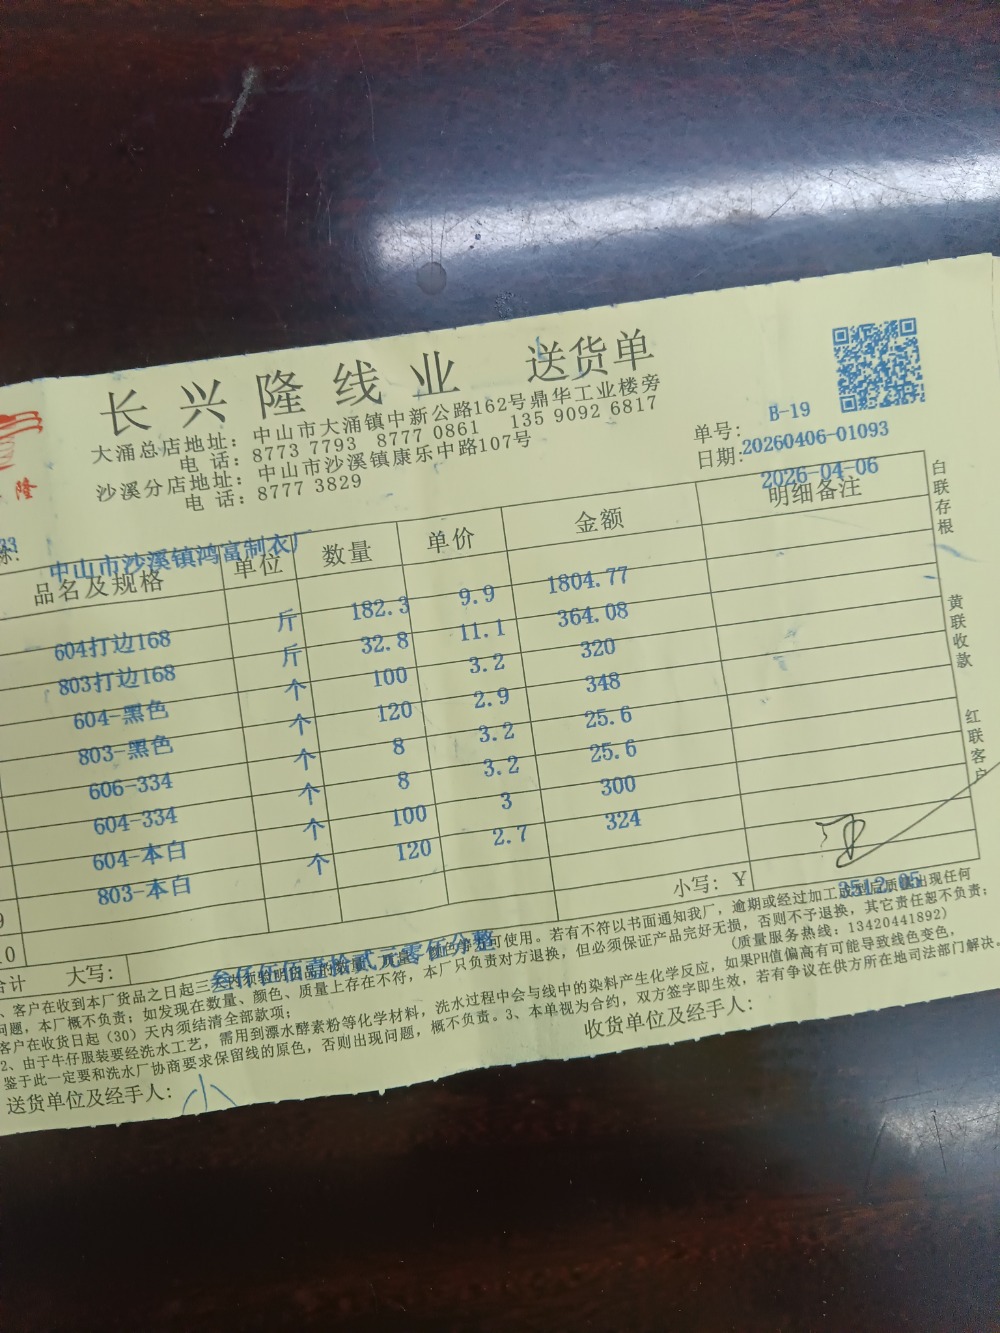 长兴隆线业 送货单
大涌总店地址：中山市大涌镇中新公路162号鼎华工业楼旁
电 话：8773 7793 8777 0861 135 9092 6817
沙溪分店地址：中山市沙溪镇康乐中路107号
电 话：8777 3829
隆
B-19
单号：20260406-01093
日期：2026-04-06
33
中山市沙溪镇鸿富制衣厂
品名及规格 单位 数量 单价 金额 明细备注
604打边168 斤 182.3 9.9 1804.77
803打边168 斤 32.8 11.1 364.08
604-黑色 个 100 3.2 320
803-黑色 个 120 2.9 348
606-334 个 8 3.2 25.6
604-334 个 8 3.2 25.6
604-本白 个 100 3 300
803-本白 个 120 2.7 324
9
10
合计 大写：叁仟伍佰壹拾贰元零伍分整 小写：￥3512.05
、客户在收到本厂货品之日起三天内 可使用。若有不符以书面通知我厂，逾期或经过加工 出现任何
问题，本厂概不负责；如发现在数量、颜色、质量上存在不符，本厂只负责对方退换，但必须保证产品完好无损，否则不予退换，其它责任恕不负责；
客户在收货日起（30）天内须结清全部款项； （质量服务热线：13420441892）
2、由于牛仔服装要经洗水工艺，需用到漂水酵素粉等化学材料，洗水过程中会与线中的染料产生化学反应，如果PH值偏高有可能导致线色变色，
鉴于此一定要和洗水厂协商要求保留线的原色，否则出现问题，概不负责。3、本单视为合约，双方签字即生效，若有争议在供方所在地司法部门解决。
送货单位及经手人： 收货单位及经手人：
白联存根
黄联收款
红联客户